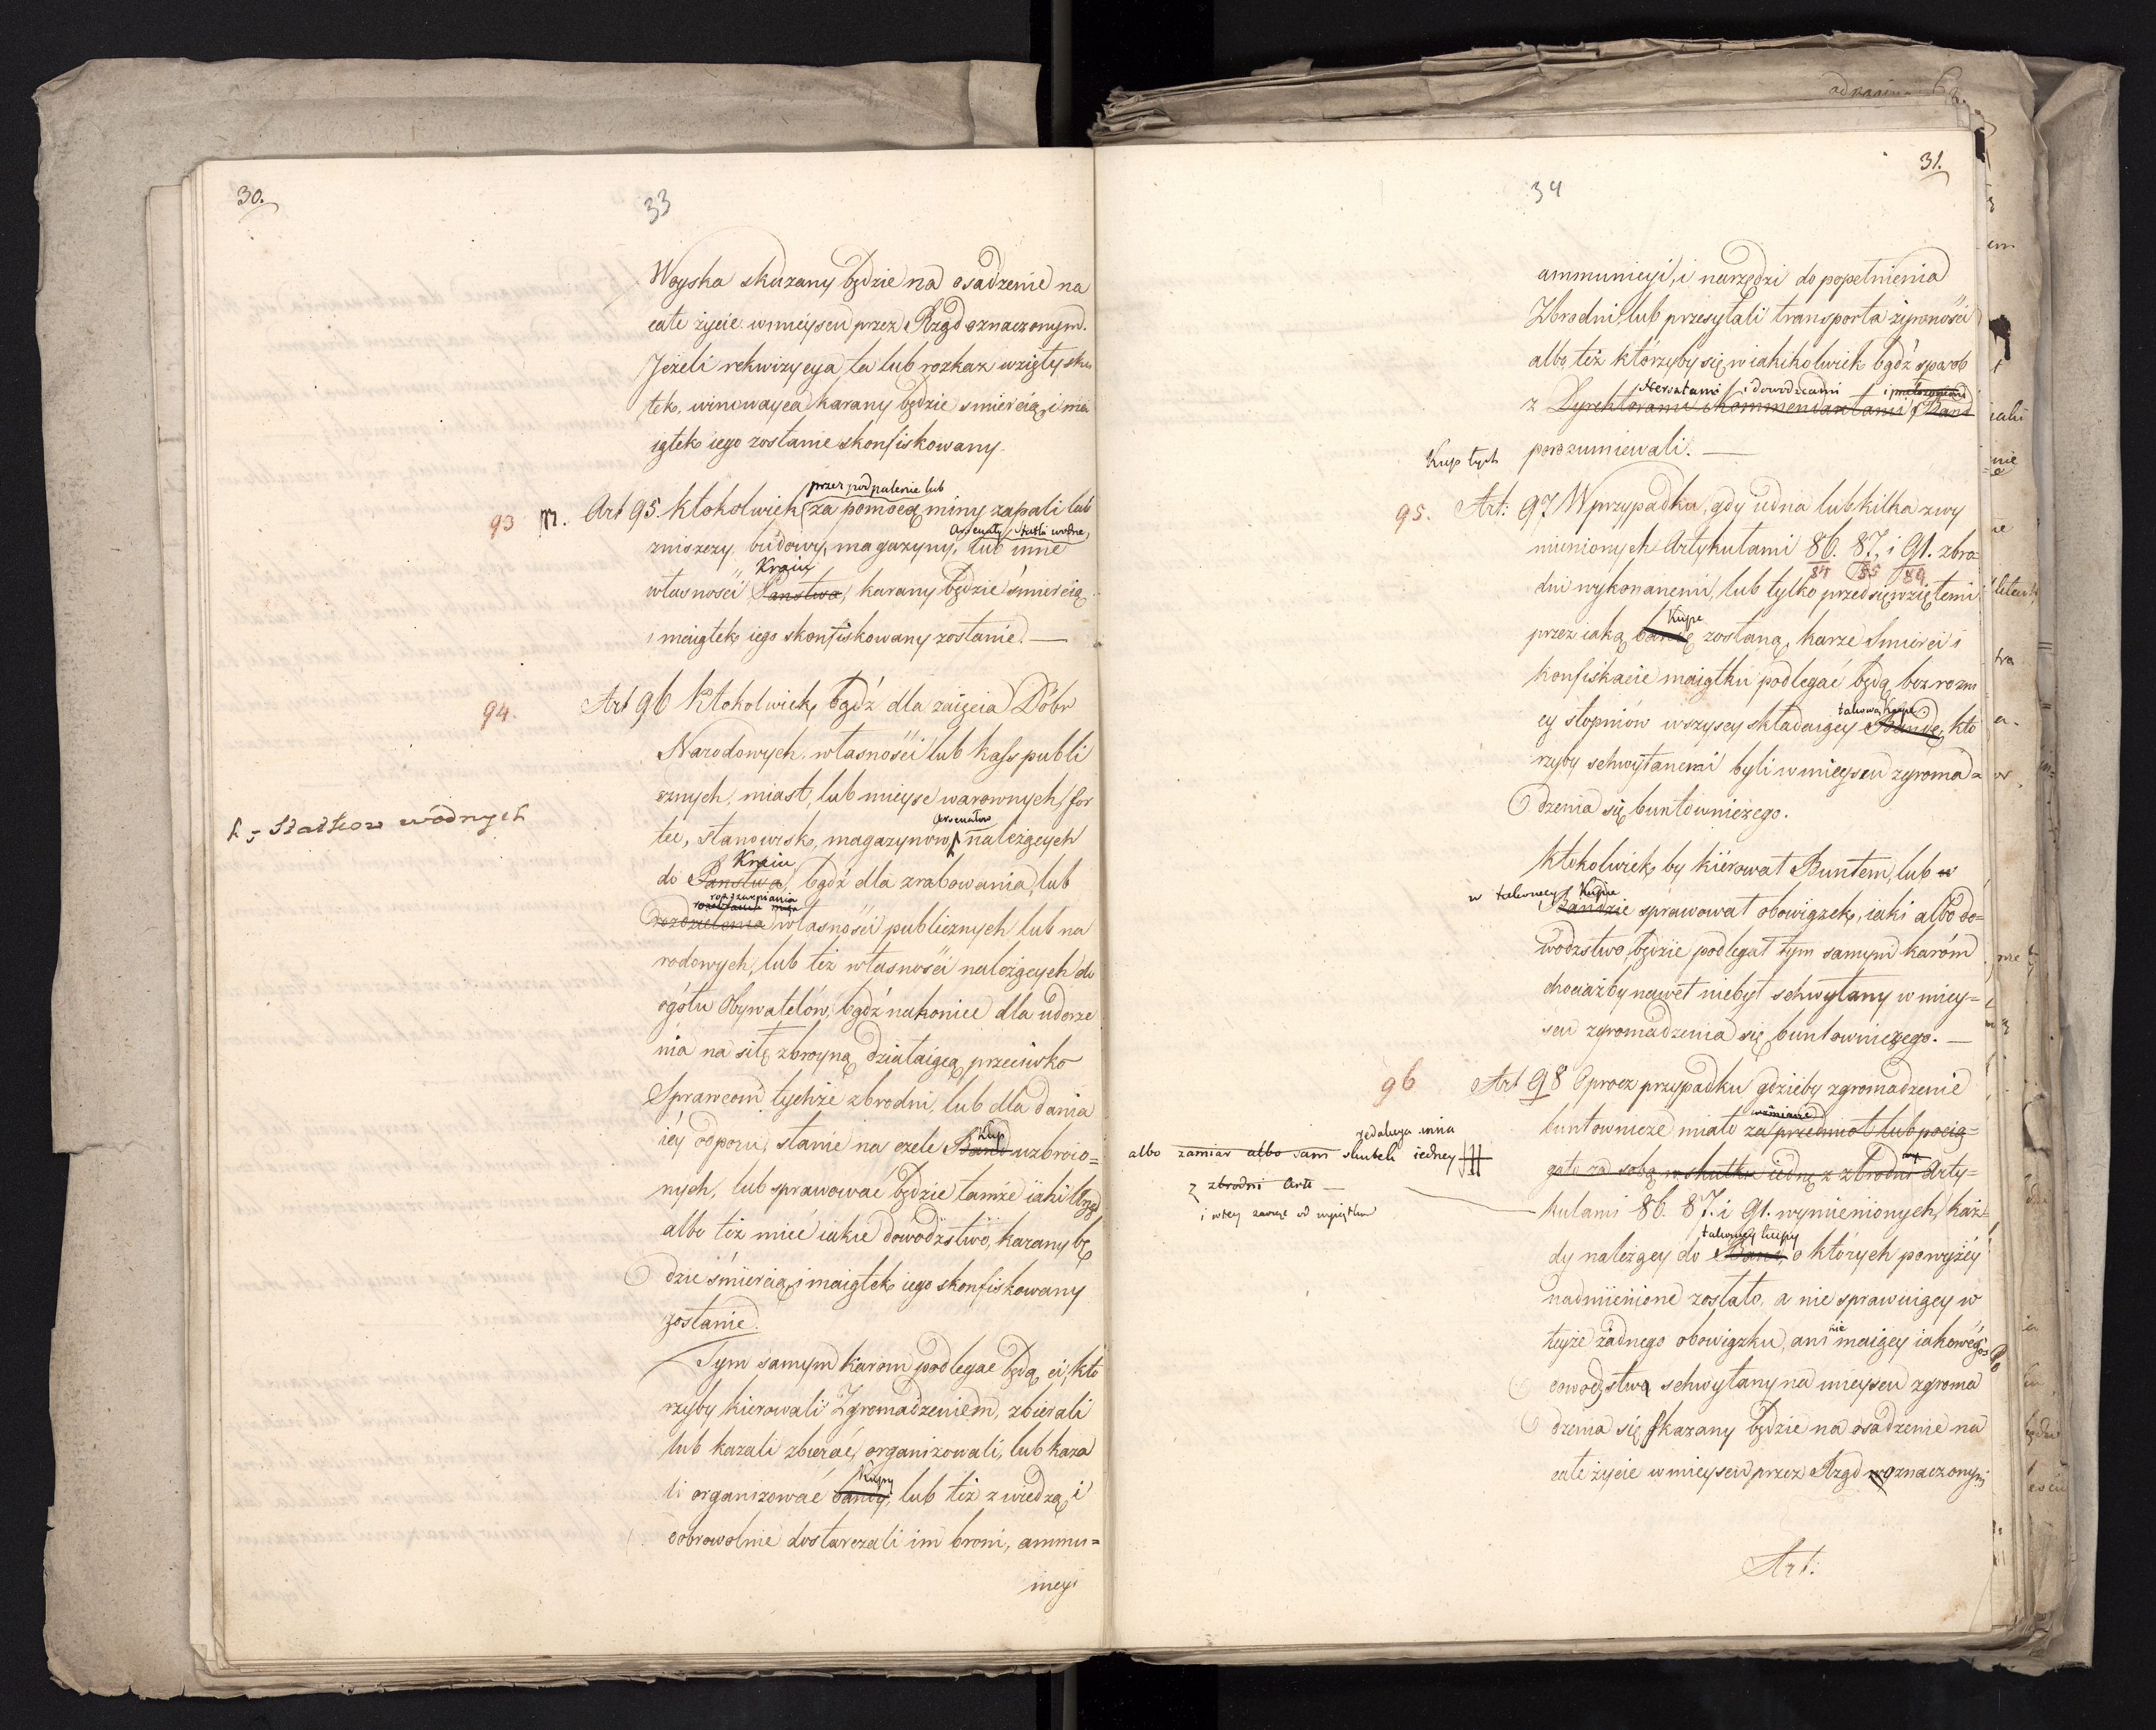 30.
33
Woyska skazany będzie na osadzenie na
całe życie w mieyscu przez Rząd oznaczonym.
Jeżeli rekwizycya ta lub rozkaz wzięły sku
tek, winowayca karany będzie śmiercią, i ma
iątek iego zostanie skonfiskowany.
przez podpalenie lub
93 Art 95. Ktokolwiek za pomocą miny zapali lub
Arsenały, Statki wodne,
zniszczy, budowy, magazyny, lub inne
Kraiu
własności Panstwa, karany będzie śmiercią
i maiątek iego skonfiskowany zostanie. —
94. Art 96 Ktokolwiek, bądź dla zaięcia Dóbr
Narodowych, własności lub kass publi
cznych, miast, lub mieysc warownych, for
Statkow wodnych
Arsenałow
tec, stanowisk, magazynow należących
Kraiu
do Panstwa, bądź dla zrabowania, lub
rozszarpania
rozdzielenia własności publicznych lub na
rodowych, lub też własności należących do
ogółu Obywatelów, bądź nakoniec dla uderze
nia na siłę zbroyną działaiącą przeciwko
Sprawcom tychże zbrodni, lub dla dania
Kup
iéy odporu, stanie na czele Band uzbroio=
nych, lub sprawować będzie tamże iaki Urząd
albo też mieć iakie dowodzstwo, karany bę
dzie śmiercią, i maiątek iego skonfiskowany
zostanie.
Tym samym karom podlegać będą ci, kto
rzyby kierowali Zgromadzeniem, zbierali
lub kazali zbierać, organizowali, lub kaza
Kupy
li organizować bandy, lub też z wiedzą i
dobrowolnie dostarczali im broni, ammu=
nicyi
31.
34
ammunicyi, i narzędzi do popełnienia
Zbrodni, lub przesyłali transporta żywności
albo też którzyby się w iakikolwiek bądź sposób
Hersztami i dowodzcami
z Dyrektorami i kommendantami Band
Kup tych porozumiewali. —
95. Art: 97 W przypadku, gdy iedna lub kilka z wy
mienionych Artykułami 86. 87. i 91. zbro=
84 85 89
dni wykonanemi, lub tylko przedsięwziętemi
Kupę
przez iaką bandę zostaną, karze Smierci i
konfiskacie maiątku podlegać będą bez rożni
takową Kupę
cy stopniów wszyscy składaiący Bandę, kto
rzyby schwytanemi byli w mieyscu zgroma=
dzenia się buntowniczego.
Ktokolwiek by kierował Buntem, lub w
w takowey Kupie
Bandzie sprawował obowiązek, iaki albo do=
wodzstwo, będzie podlegał tym samym karóm
chociażby nawet niebył schwytany w miey=
scu zgromadzenia się buntowniczego. —
96 Art 98 Oprocz przypadku gdzieby zgromadzenie
buntownicze miało za przedmiot lub pocią=
redakcya inna
albo zamiar albo sam skutek iedney
z zbrodni Art —
gało za sobą w skutku iednę z zbrodni Arty=
kułami 86. 87. i 91. wymienionych, każ=
takowey kupy
dy należący do Band, o których powyżéy
nadmienione zostało, a nie sprawuiący w
nie
teyże żadnego obowiązku, ani maiący iakowégo
dowodzstwa schwytany na mieyscu zgroma
dzenia się skazany będzie na osadzenie na
całe życie w mieyscu przez Rząd oznaczonym
Art: